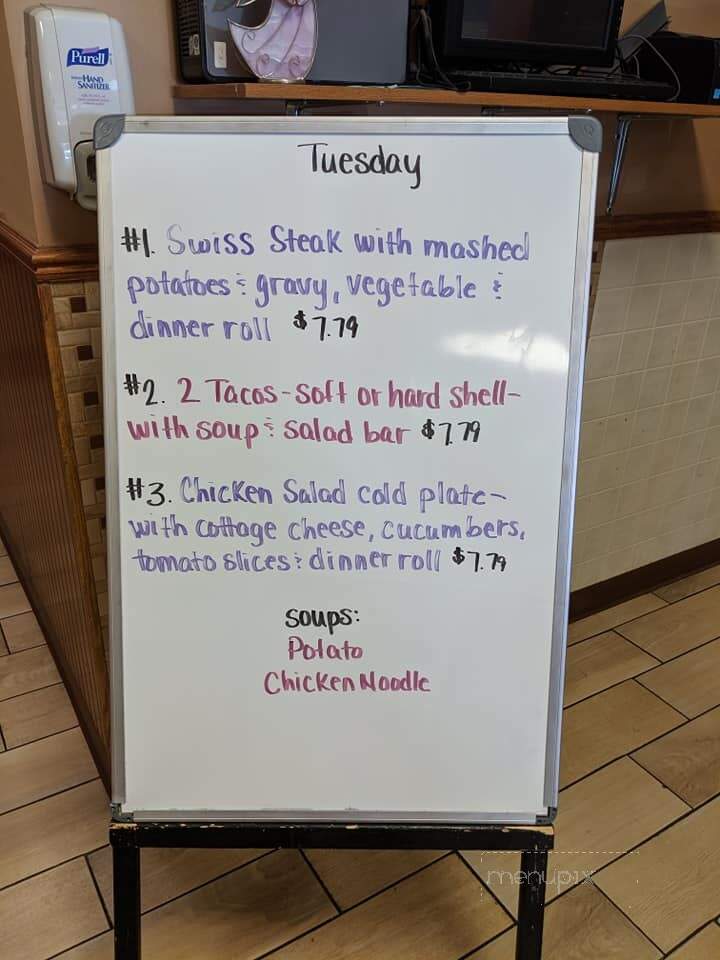 Purell
HAND
SANITIZER
Tuesday
#1. Swiss Steak with mashed
potatoes & gravy, vegetable &
dinner roll $7.79
#2. 2 Tacos-soft or hard shell-
with soup & salad bar $7.79
#3. Chicken Salad cold plate-
with cottage cheese, cucumbers,
tomato slices & dinner roll $7.79
soups:
Potato
Chicken Noodle
menupix